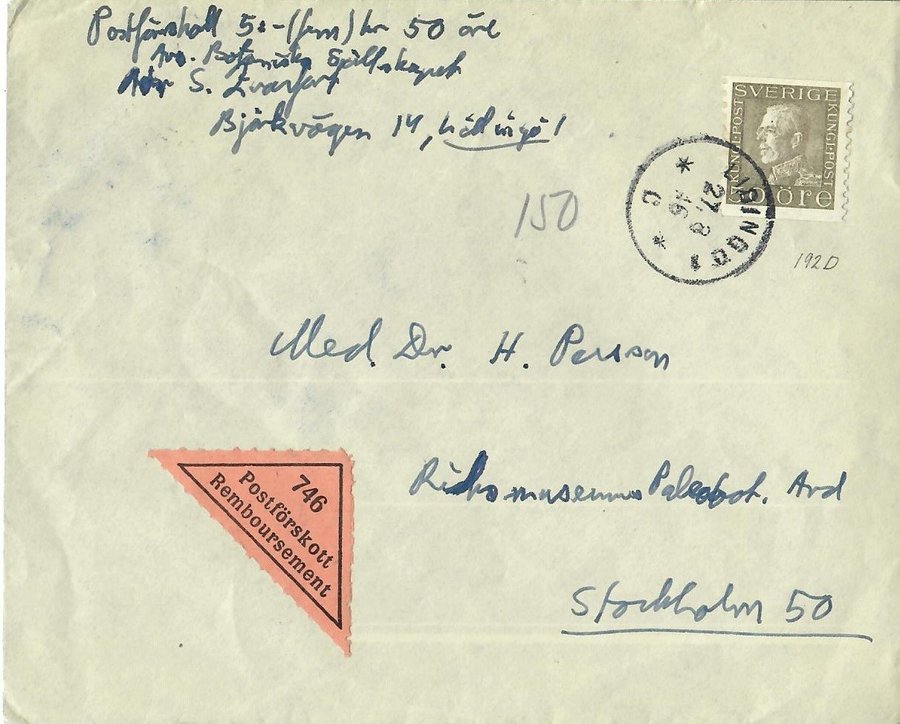 Postförskott 5:-(fem) kr 50 öre
Avs. Botaniska Sällskapet
Adr S.
Björkvägen 14, Lidingö 1
SVERIGE
KUNGL·POST
KUNGL·POST
50 öre
LIDINGÖ 1
27. 8
46
C
150
192D
Med. Dr. H. Persson
Riksmuseums Paleobot. Avd
746
Postförskott
Remboursement
Stockholm 50